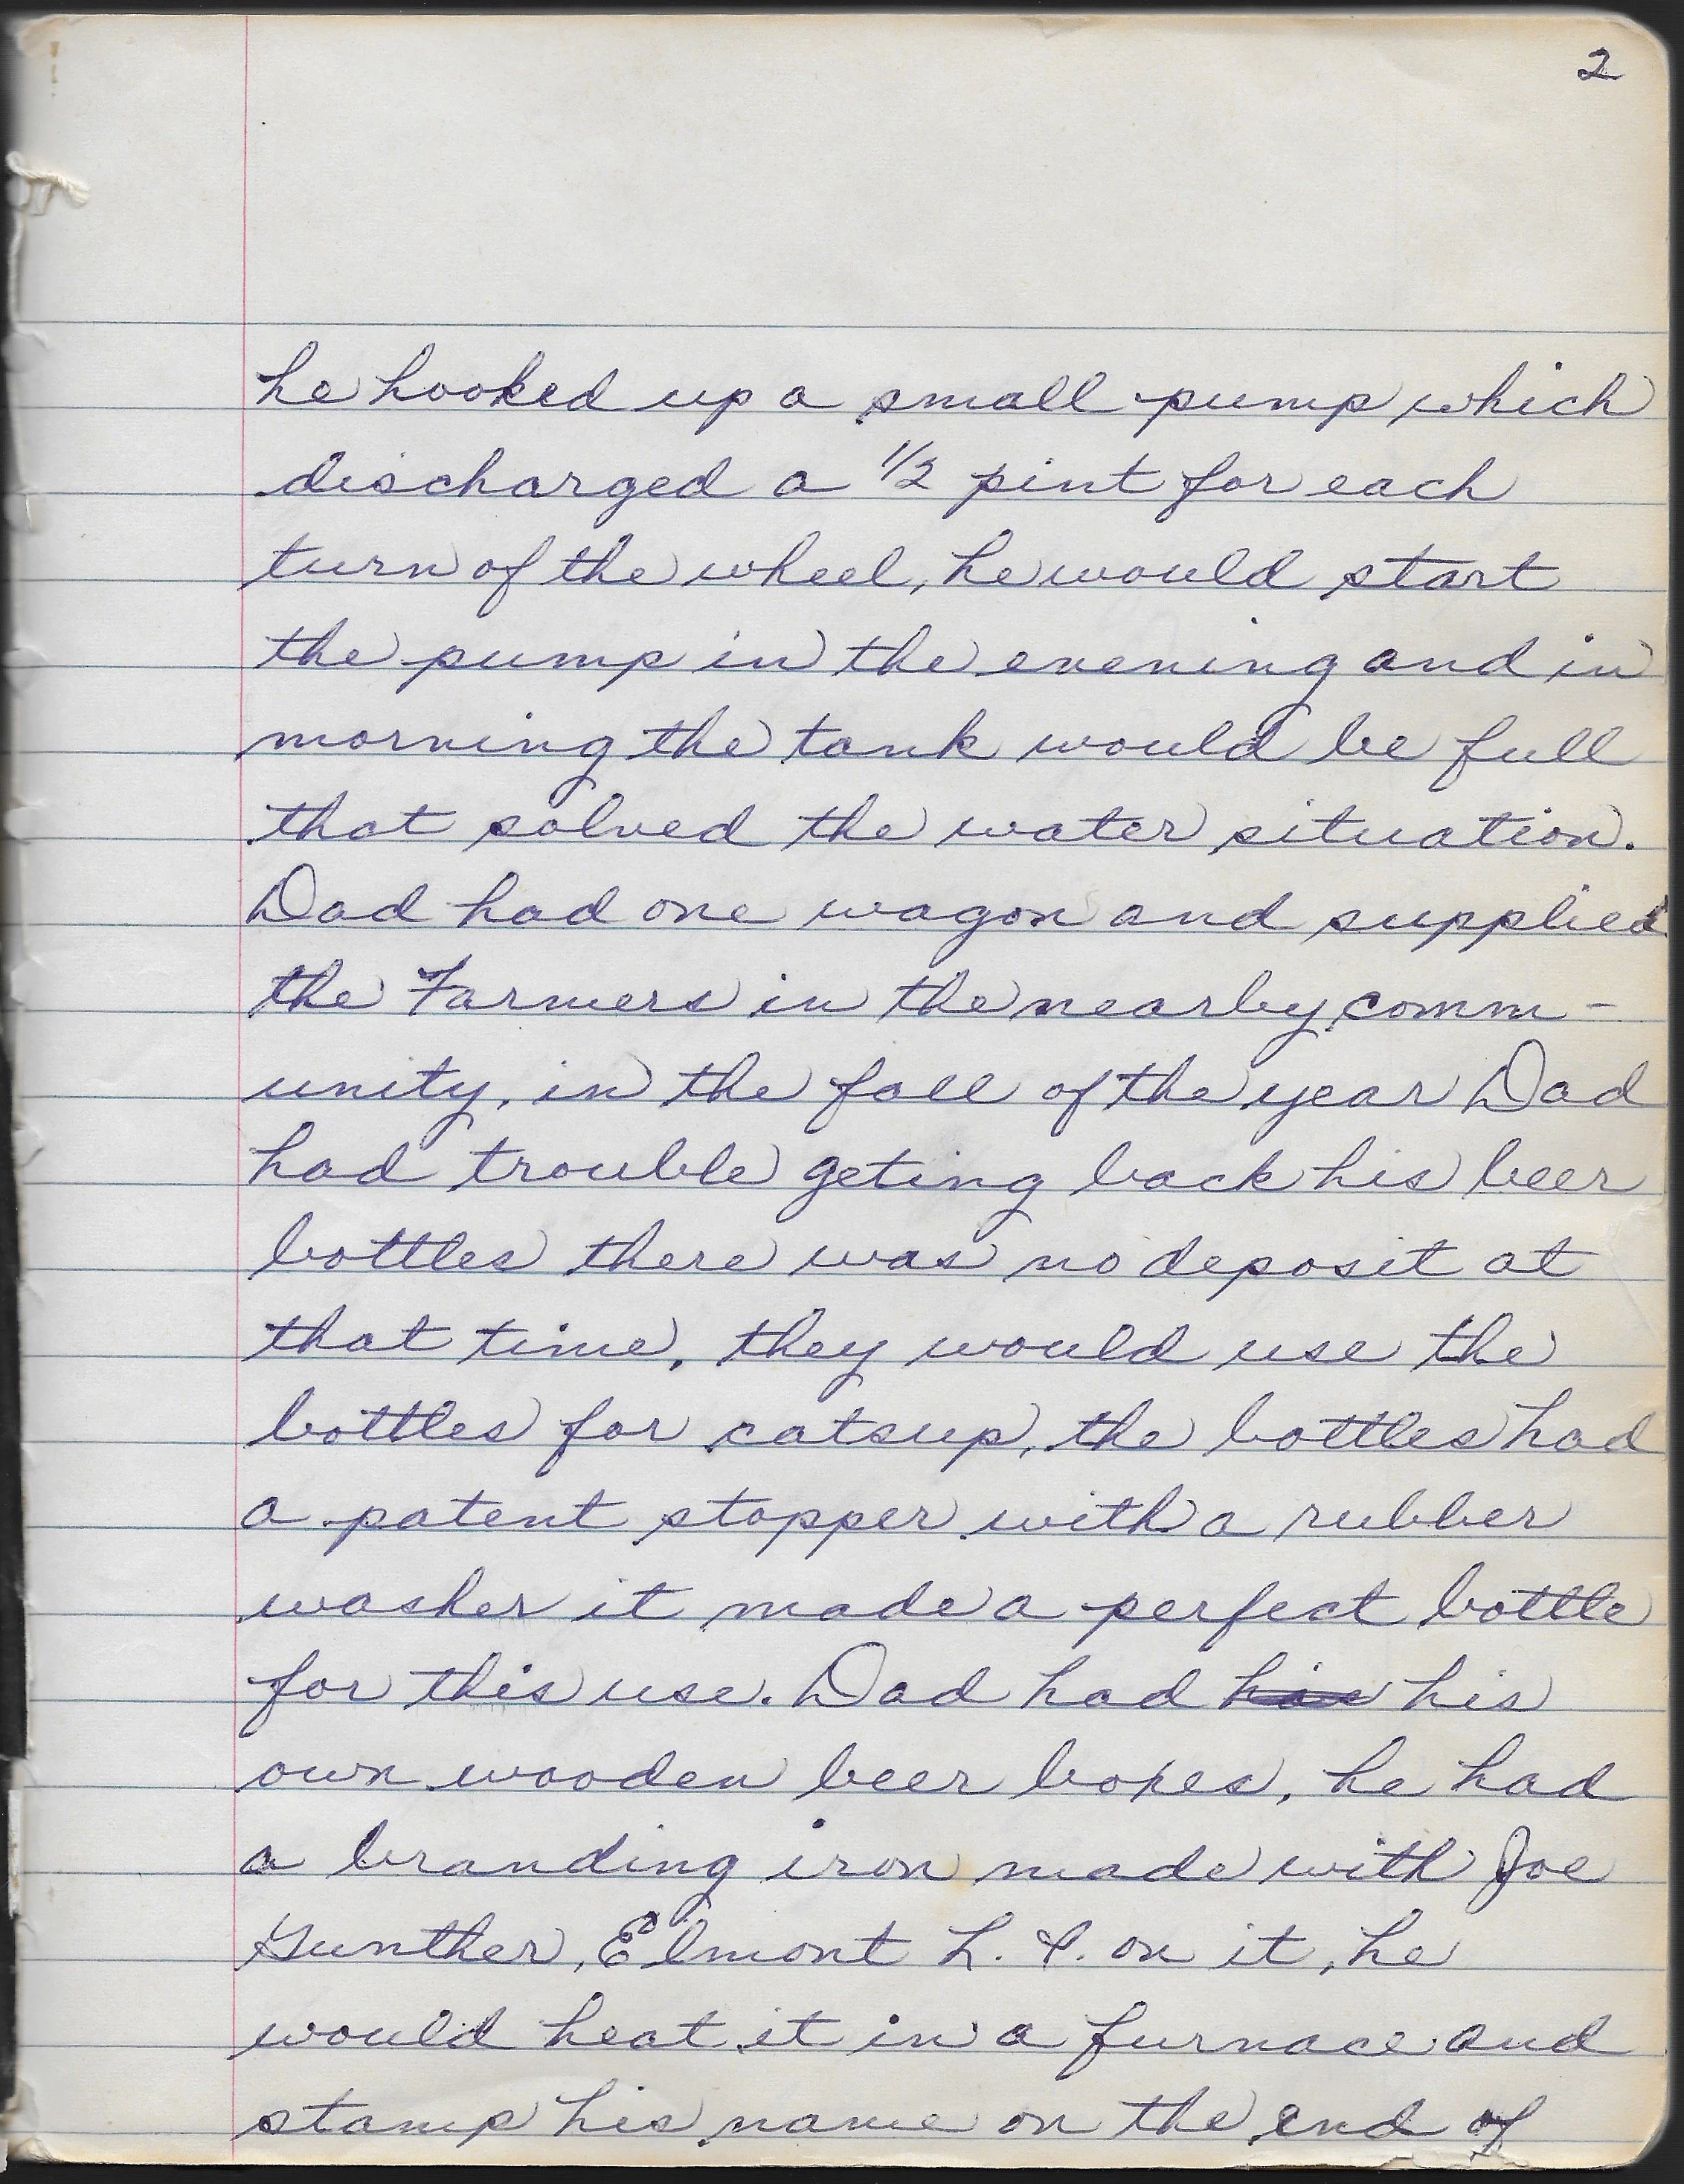 2
he hooked up a small pump which
discharged a 1/2 pint for each
turn of the wheel, he would start
the pump in the evening and in
morning the tank would be full
that solved the water situation.
Dad had one wagon and supplied
the Farmers in the nearby comm-
unity, in the fall of the year Dad
had trouble geting back his beer
bottles there was no deposit at
that time, they would use the
bottles for catsup, the bottles had
a patent stopper with a rubber
washer it made a perfect bottle
for this use. Dad had his his
own wooden beer boxes, he had
a branding iron made with Joe
Gunther, Elmont L. I. on it, he
would heat it in a furnace and
stamp his name on the end of